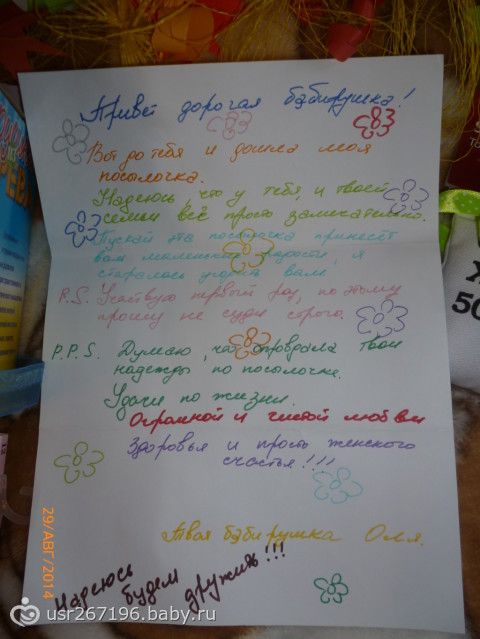 Привет дорогая бэбирушка!
Вот до тебя и дошла моя
посылочка.
Надеюсь, что у тебя, и твоей
семьи всё просто замечательно.
Пускай эта посылочка принесёт
вам маленькие радости, я
старалась угодить вам
P.S. Участвую первый раз, поэтому
прошу не суди строго.
P.P.S. Думаю, что оправдала твои
надежды по посылочке.
Удачи по жизни.
Огромной и чистой любви
Здоровья и просто женского
счастья!!!
Твоя бэбирушка Оля.
Надеюсь
будем
дружить!!!
29/АВГ/2014
usr267196.baby.ru
50